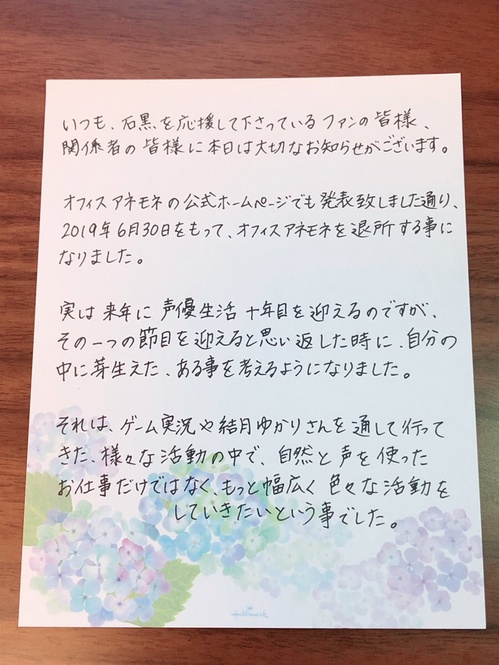 いつも、石黒を応援して下さっているファンの皆様、
関係者の皆様に本日は大切なお知らせがございます。
オフィスアネモネの公式ホームページでも発表致しました通り、
2019年6月30日をもって、オフィスアネモネを退所する事に
なりました。
実は来年に声優生活十年目を迎えるのですが、
その一つの節目を迎えると思い返した時に、自分の
中に芽生えた、ある事を考えるようになりました。
それは、ゲーム実況や結月ゆかりさんを通して行って
きた、様々な活動の中で、自然と声を使った
お仕事だけではなく、もっと幅広く色々な活動を
していきたいという事でした。
Hallmark